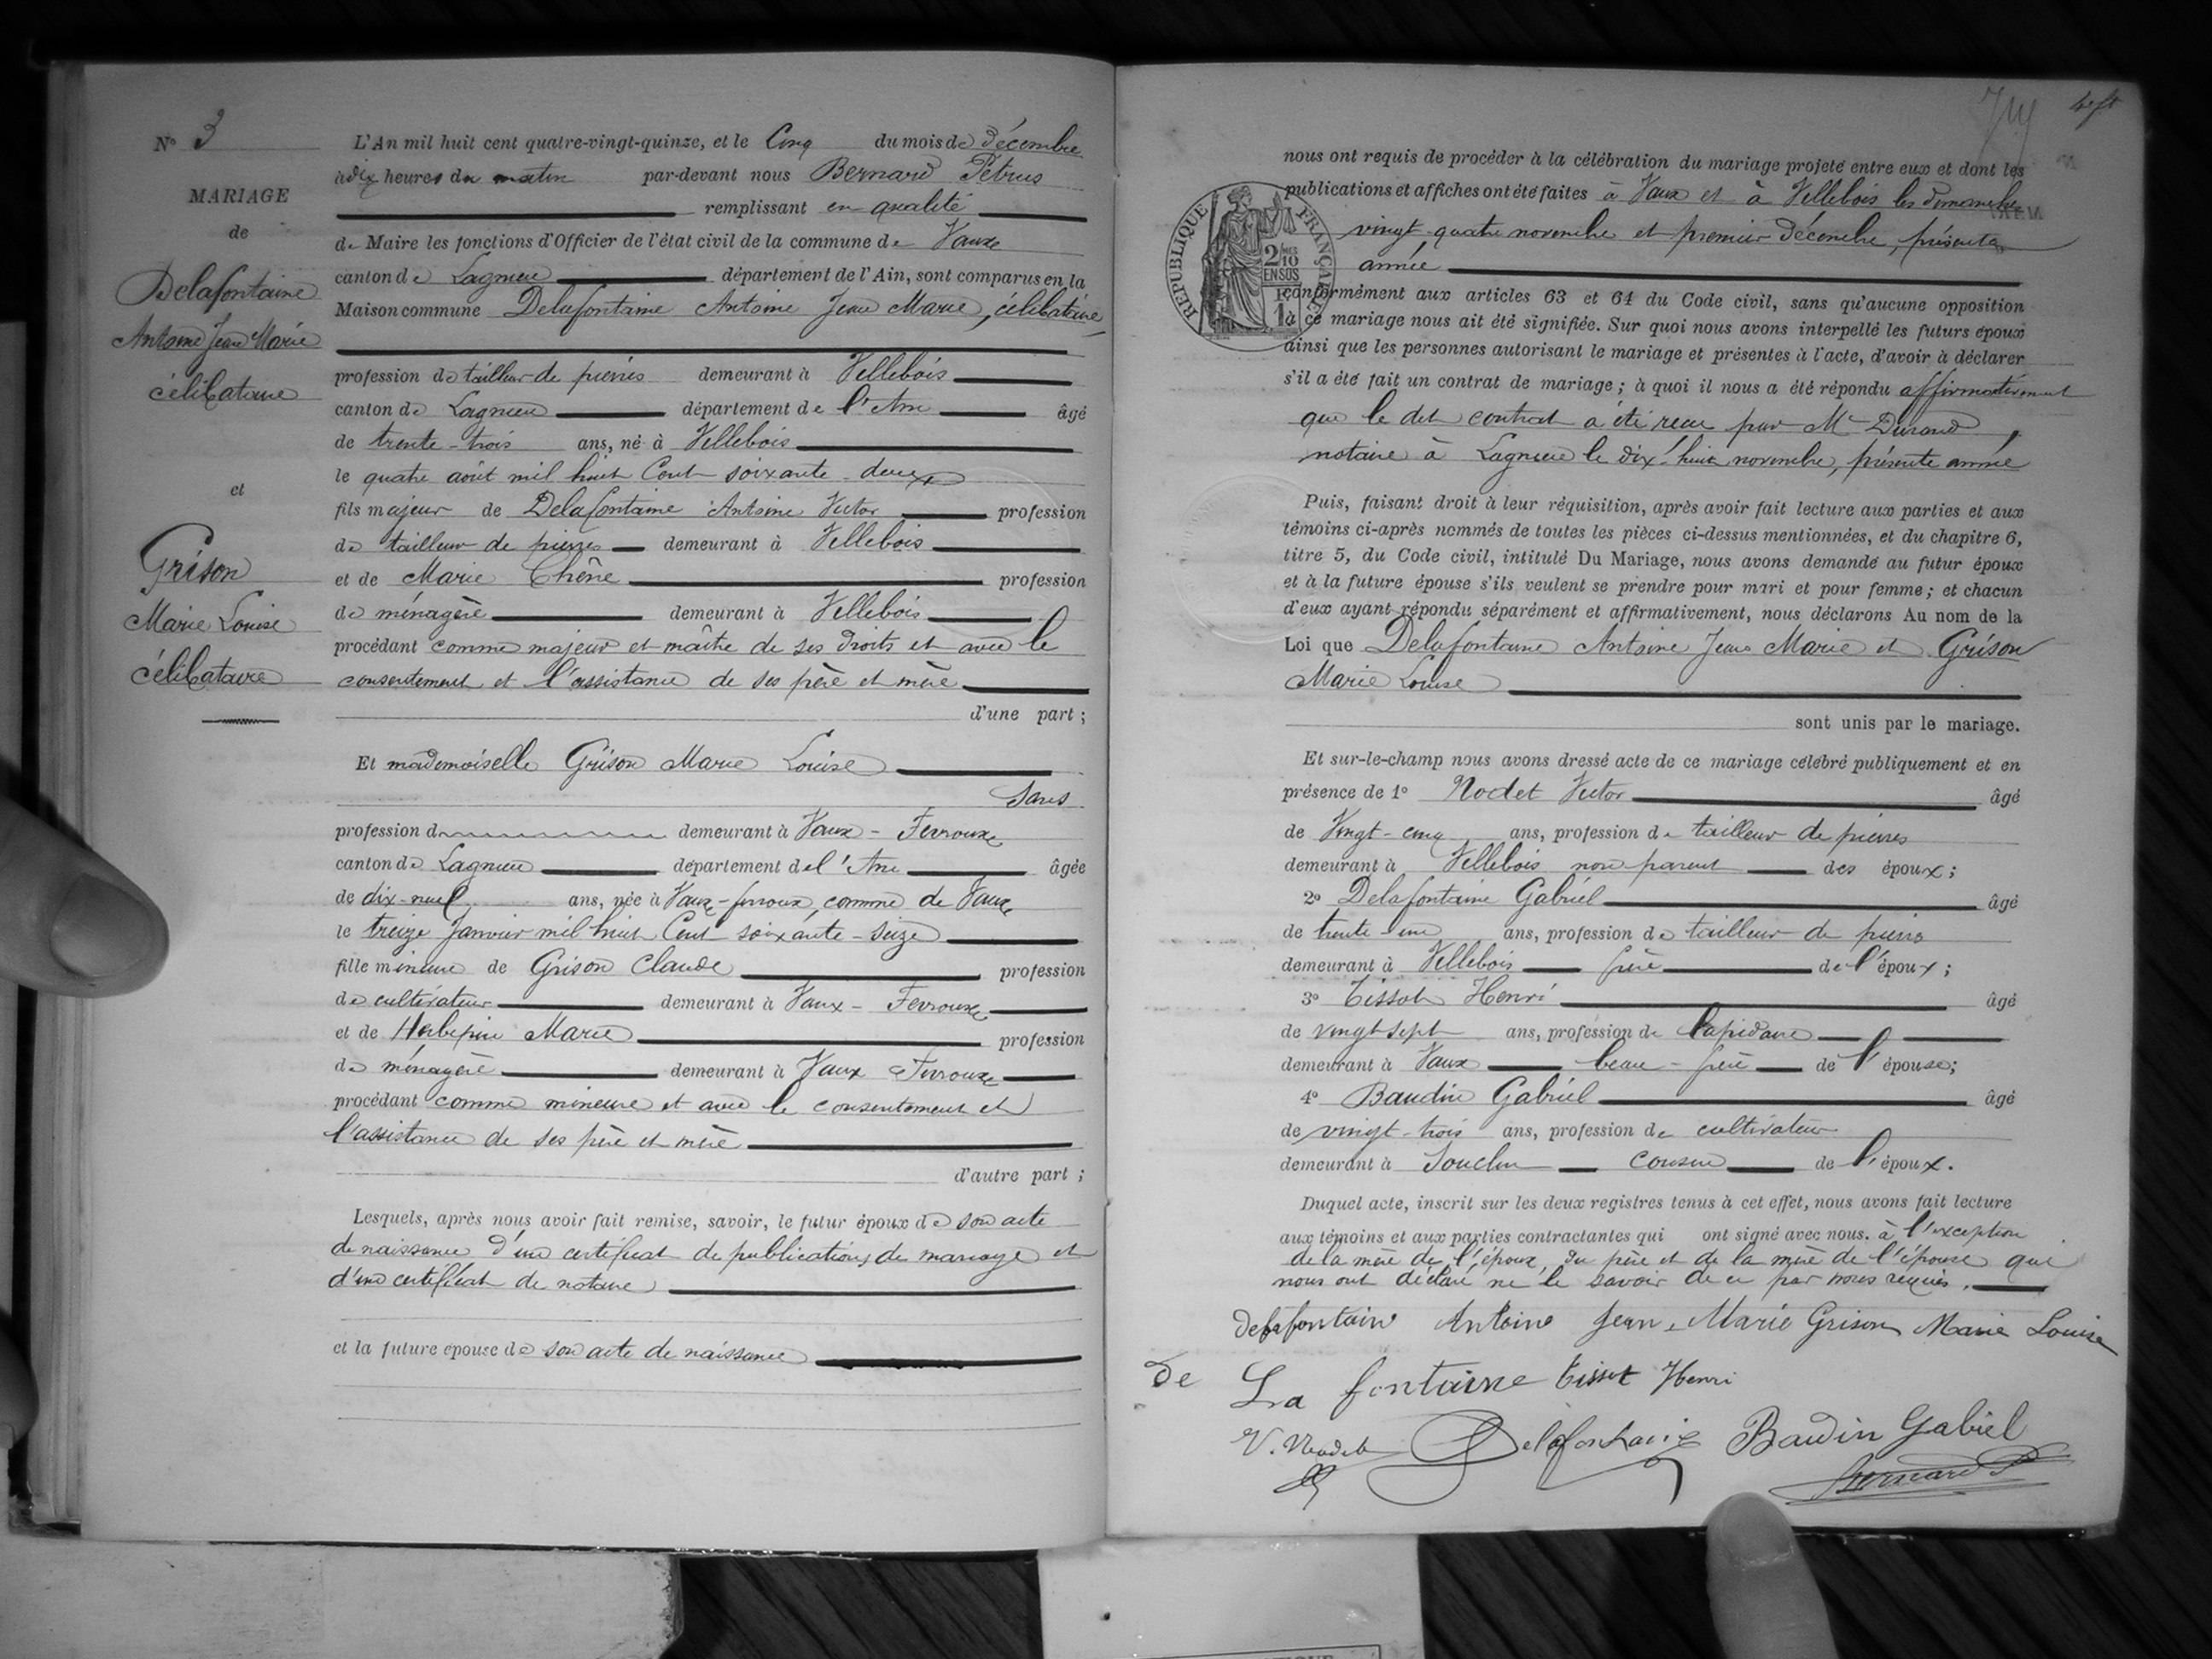 N° 3
MARIAGE
de
Delafontaine
Antoine Jean Marie
célibataire
et
Grison
Marie Louise
célibataire
L'An mil huit cent quatre-vingt-quinze, et le Cinq du mois de décembre
à dix heures du matin par-devant nous Bernard Pétrus
remplissant en qualité
de Maire les fonctions d'Officier de l'état civil de la commune de Vaux
canton de Lagnieu département de l'Ain, sont comparus en la
Maison commune Delafontaine Antoine Jean Marie, célibataire
profession de tailleur de pierres demeurant à Villebois
canton de Lagnieu département de l'Ain âgé
de trente-trois ans, né à Villebois
le quatre août mil huit Cent soixante-deux
fils majeur de Delafontaine Antoine Victor profession
de tailleur de pierres demeurant à Villebois
et de Marie Chêne profession
de ménagère demeurant à Villebois
procédant comme majeur et maître de ses droits et avec le
consentement et l'assistance de ses père et mère
d'une part ;
Et mademoiselle Grison Marie Louise
Sans
profession d demeurant à Vaux - Fevroux
canton de Lagnieu département de l'Ain âgée
de dix-neuf ans, née à Vaux-fevroux, commune de Vaux
le treize Janvier mil huit Cent soixante-seize
fille mineure de Grison Claude profession
de cultivateur demeurant à Vaux - Fevroux
et de Herbepin Marie profession
de ménagère demeurant à Vaux Fevroux
procédant comme mineure et avec le consentement et
l'assistance de ses père et mère
d'autre part ;
Lesquels, après nous avoir fait remise, savoir, le futur époux de son acte
de naissance d'un certificat de publications de mariage et
d'un certificat de notaire
et la future épouse de son acte de naissance
REPUBLIQUE FRANÇAISE
2/10 EN SUS
nous ont requis de procéder à la célébration du mariage projeté entre eux et dont les
publications et affiches ont été faites à Vaux et à Villebois les dimanches
vingt-quatre novembre et premier décembre, présente
année
conformément aux articles 63 et 64 du Code civil, sans qu'aucune opposition
à ce mariage nous ait été signifiée. Sur quoi nous avons interpellé les futurs époux
ainsi que les personnes autorisant le mariage et présentes à l'acte, d'avoir à déclarer
s'il a été fait un contrat de mariage ; à quoi il nous a été répondu affirmativement
que le dit contrat a été reçu par Me Durand,
notaire à Lagnieu le dix-huit novembre, présente année
Puis, faisant droit à leur réquisition, après avoir fait lecture aux parties et aux
témoins ci-après nommés de toutes les pièces ci-dessus mentionnées, et du chapitre 6,
titre 5, du Code civil, intitulé Du Mariage, nous avons demandé au futur époux
et à la future épouse s'ils veulent se prendre pour mari et pour femme ; et chacun
d'eux ayant répondu séparément et affirmativement, nous déclarons Au nom de la
Loi que Delafontaine Antoine Jean Marie et Grison
Marie Louise
sont unis par le mariage.
Et sur-le-champ nous avons dressé acte de ce mariage célébré publiquement et en
présence de 1° Nodet Victor âgé
de Vingt-cinq ans, profession de tailleur de pierres
demeurant à Villebois non parent des époux ;
2° Delafontaine Gabriel âgé
de trente-un ans, profession de tailleur de pierres
demeurant à Villebois frère de l'époux ;
3° Tissot Henri âgé
de vingt-sept ans, profession de lapidaire
demeurant à Vaux beau-frère de l'épouse ;
4° Baudin Gabriel âgé
de vingt-trois ans, profession de cultivateur
demeurant à Souclin cousin de l'époux.
Duquel acte, inscrit sur les deux registres tenus à cet effet, nous avons fait lecture
aux témoins et aux parties contractantes qui ont signé avec nous. à l'exception
de la mère de l'époux, du père et de la mère de l'épouse qui
nous ont déclaré ne le savoir de ce par nous requis.
delafontaine Antoine Jean-Marie Grison Marie Louise
De La fontaine Tissot Henri
V. Nodet Delafontaine Baudin Gabriel
Bernard P